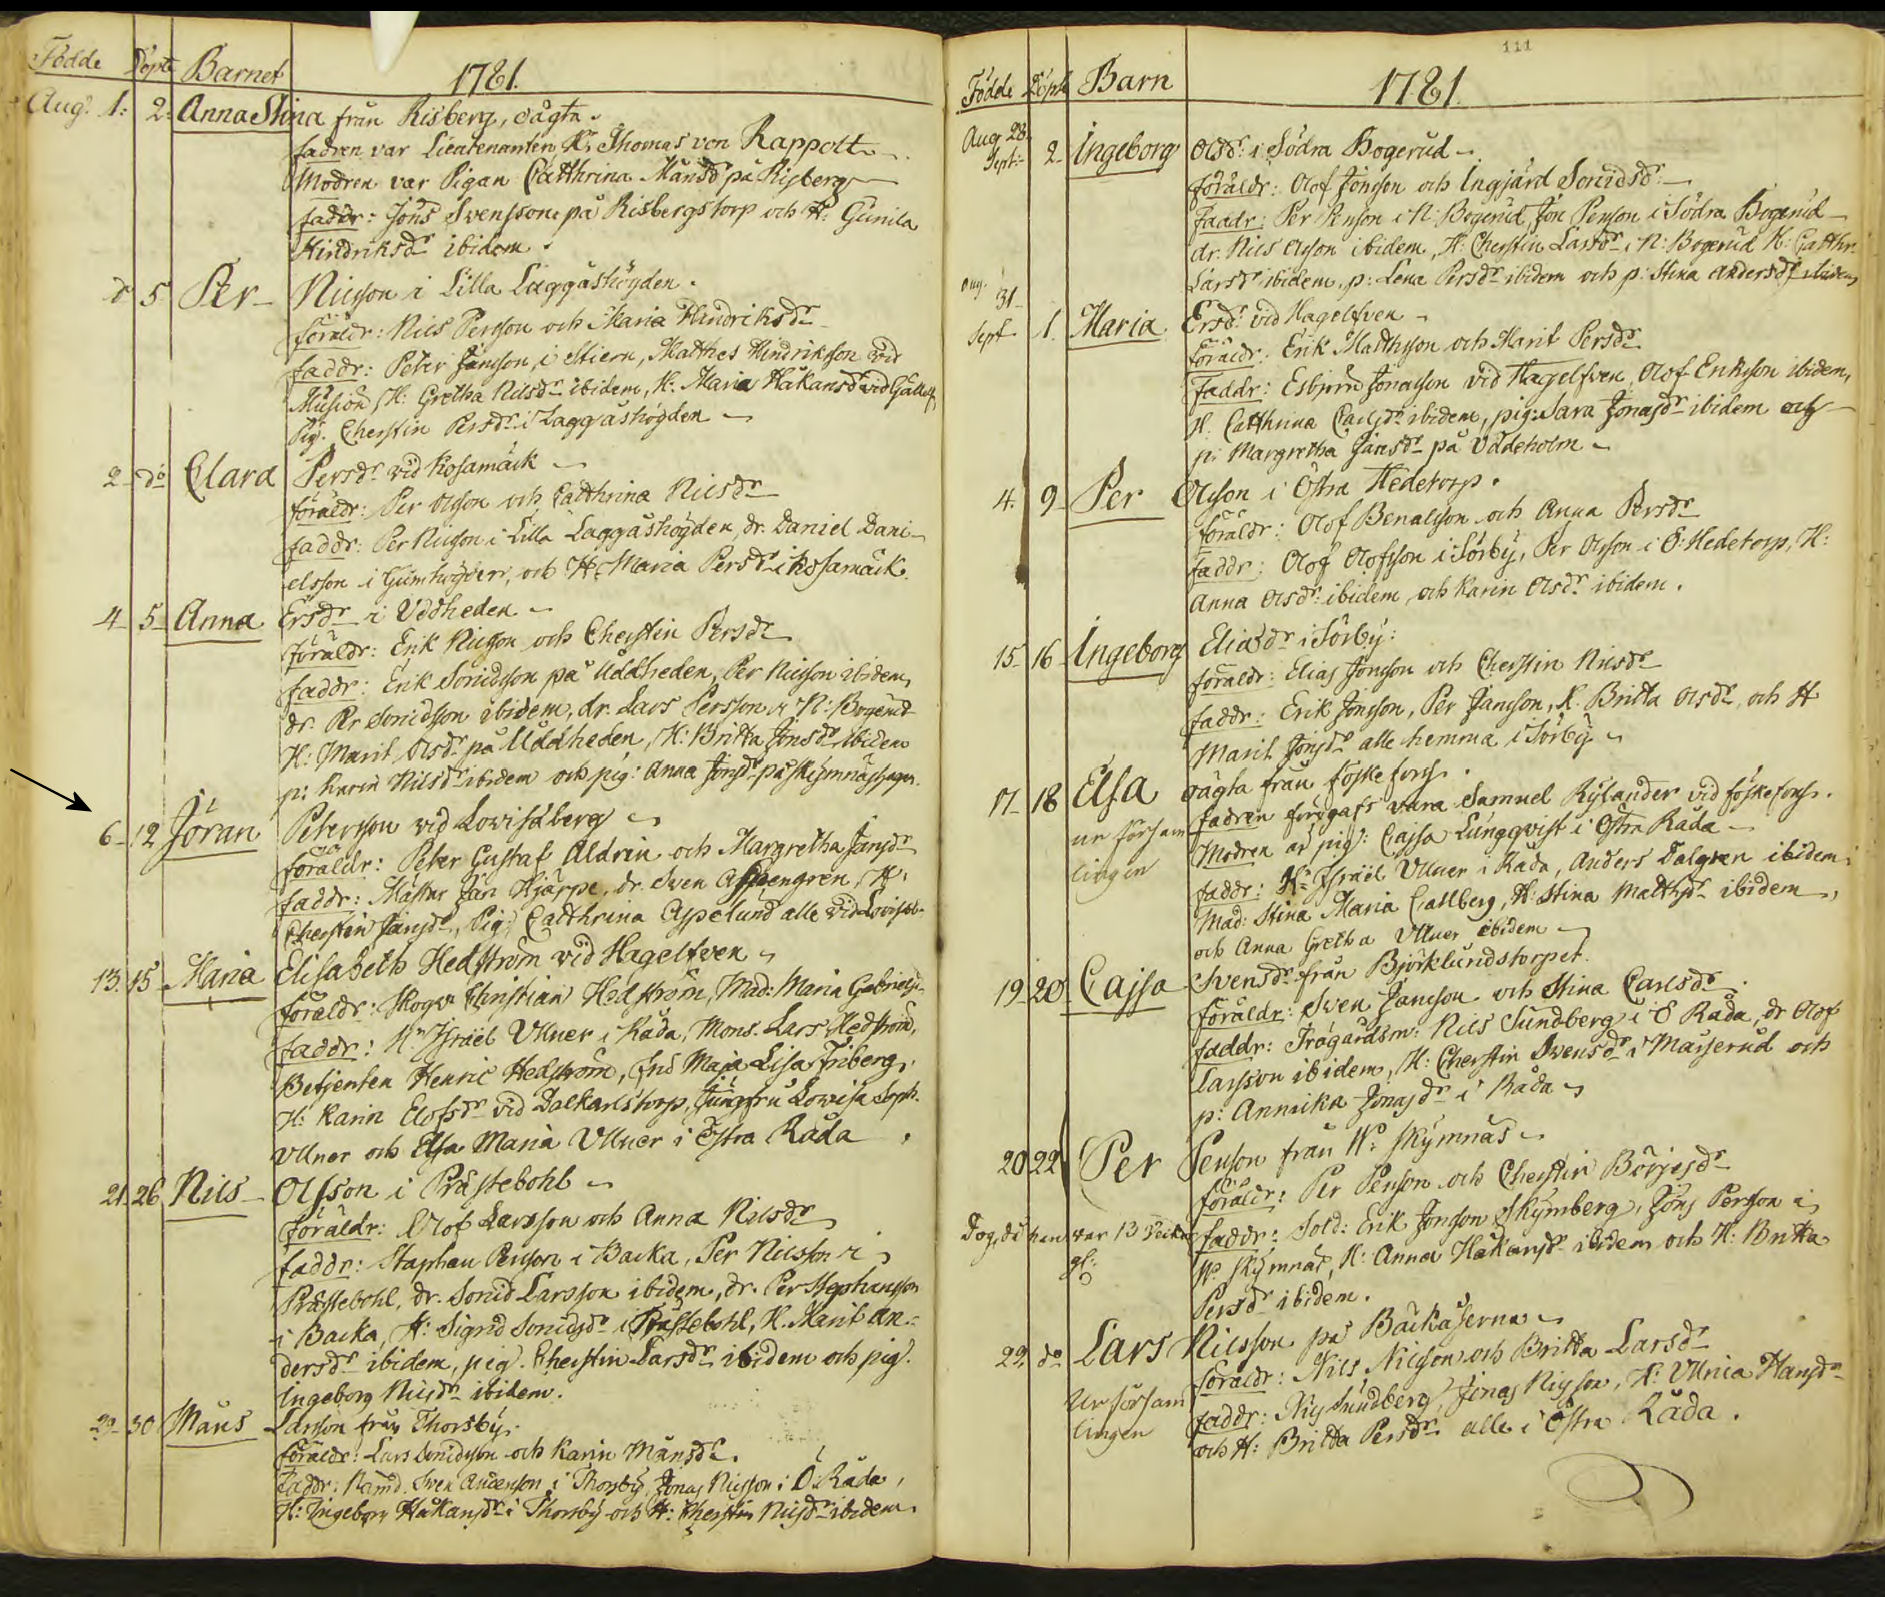 Födde Döpte Barnet 1781.
Aug: 1: 2: Anna Stina från Risberg, oägta.
fadren var Lieutenanten Hr Thomas von Rappolt
Modren var Pigan Catthrina Månsdr på Risberg
faddr: Jöns Svensson på Risbergstorp och H: Gunila
Hindriksdr ibidem.
d 5 Per Nilsson i Lilla Laggåshögden.
föräldr: Nils Persson och Maria Hindriksdr
faddr: Peter Jansson, i Stiern, Matthes Hindriksson vid
H: Gretha Nilsdr ibidem, H: Maria Håkansdr vid
Pig. Cherstin Persdr i Laggåshögden
2 do Clara Persdr vid Kosamäck
föräldr: Per Olsson och Catthrina Nilsdr
faddr: Per Nilsson i Lilla Laggåshögden, dr. Daniel Dani-
elsson i Gumhögden, och H: Maria Persdr i Kosamäck
4 5 Anna Ersdr i Uddheden
föräldr: Erik Nilsson och Cherstin Persdr
faddr: Erik Sonidsson på Uddheden, Per Nilsson ibidem,
dr. Per Sonidsson ibidem, dr. Lars Persson i N: Bogerud
H: Marit Olsdr på Uddheden, H: Britta Jonsdr ibidem
p: Karin Nilsdr ibidem och pig: Anna Jonsdr på
6 12 Jöran Petersson vid Lovisæberg
föräldr: Peter Gustaf Aldrin och Margretha Jansdr
faddr: Mäster Jan Hjärpe, dr. Sven Aspengren, H:
Cherstin Jansdr, Pig: Catthrina Aspelund alle vid Lovisæb-
13. 15 Maria Elisabeth Hedström vid Hagelfven
föräldr: Skogv Christian Hedström, Mad: Maria Gabrielsd-
faddr: Hr Israël Ullner i Råda, Mons. Lars Hedström,
Betjenten Henric Hedström, Maja Lisa Friberg,
H: Karin Elofsdr vid Dalkarlstorp, Jungfru Lovisa Soph.
Ullner och Elsa Maria Ullner i Östra Råda
21. 26 Nils Olsson i Prästebohl
föräldr: Olof Larsson och Anna Nilsdr
faddr: Staphan Persson i Backa, Per Nilsson i
Prästebohl, dr. Sonid Larsson ibidem, dr. Per Stephansson
i Backa, H: Sigrid Sonidsdr i Prästebohl, H. Marit An-
dersdr ibidem, pig. Cherstin Larsdr ibidem och pig.
Ingeborg Nilsdr ibidem.
29 30 Måns Larsson från Thorsby.
föräldr: Lars Sonidsson och Karin Månsdr.
Faddr: Nämd. Sven Andersson i Thorsby, Jonas Nilsson i Ö: Råda,
H: Ingeborg Håkansdr i Thorsby och H: Cherstin Nilsdr ibidem.
111
Födde Döpte Barn 1781.
Aug: 28.
Sept: 2 Ingeborg Olsdr: i Södra Bogerud
föräldr: Olof Jonsson och Ingjärd Sonidsdr:
Faddr: Per Persson i N: Bogerud, Jon Persson i Södra Bogerud
dr: Nils Olsson ibidem, H: Cherstin Larsdr i N: Bogerud H: Catthr:
Larsdr ibidem, p: Lena Persdr ibidem och p: Stina Andersdr ibidem
Aug. 31
Sept 1. Maria Ersdr: vid Hagelfven
föräldr: Erik Matthsson och Marit Persdr
Faddr: Esbjörn Jonasson vid Hagelfven, Olof Eriksson ibidem,
H. Catthrina Carlsdr ibidem, pig: Sara Jonasdr ibidem och
p: Margretha Jansdr på Uddeholm
4. 9 Per Olsson i Östra Hedetorp.
föräldr: Olof Benalsson och Anna Persdr
faddr: Olof Olofsson i Sörby, Per Olsson i Ö: Hedetorp, H:
Anna Olsdr: ibidem och Karin Olsdr ibidem.
15 16 Ingeborg Eliædr i Sörby:
föräldr: Elias Jonsson och Cherstin Nilsdr
faddr: Erik Jonsson, Per Jansson, H. Britta Olsdr, och H
Marit Jonsdr alle hemma i Sörby
17 18 Elsa oägta från Föskefors.
ur församlingen
fadren föregafs vara Samuel Rylander vid föskefors.
Modren är pig: Cajsa Lungqvist i Östra Råda
faddr: Hr Israël Ullner i Råda, Anders Dalgren ibidem
Mad: Stina Maria Carlberg, H: Stina Matthsdr ibidem,
och Anna Gretha Ullner ibidem
19 20 Cajsa Svensdr från Björklundstorpet.
föräldr: Sven Jansson och Stina Carlsdr.
faddr: Trägårdsm: Nils Sundberg i Ö Råda, dr Olof
Larsson ibidem, H: Cherstin Svensdr i Maiserud och
p: Annika Jonasdr i Råda
20 22 Per Person från Wr Skymnäs
föräldr: Per Persson och Cherstin Börjesdr
Tog, då han var 13 veckor gl:
faddr: Sold: Erik Jonsson Skymberg, Jöns Persson i
Wr Skymnäs, H: Anna Håkansdr ibidem och H: Britta
Persdr ibidem.
22 do Lars Nilsson på Bäckåserna
ur församlingen
föräldr: Nils Nilsson och Britta Larsdr
faddr: Nils Sundberg, Jonas Nilsson, H: Ullrica Hansdr
och H: Britta Persdr alle i Östra Råda.